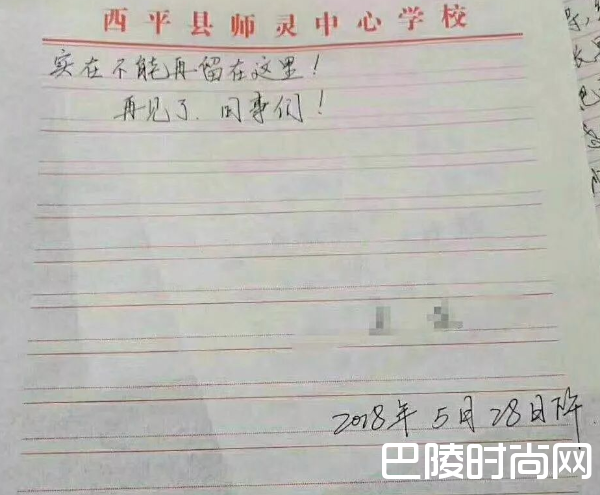 西平县师灵中心学校
实在不能再留在这里！
再见了、同事们！
2018年5月28日下午
巴陵时尚网